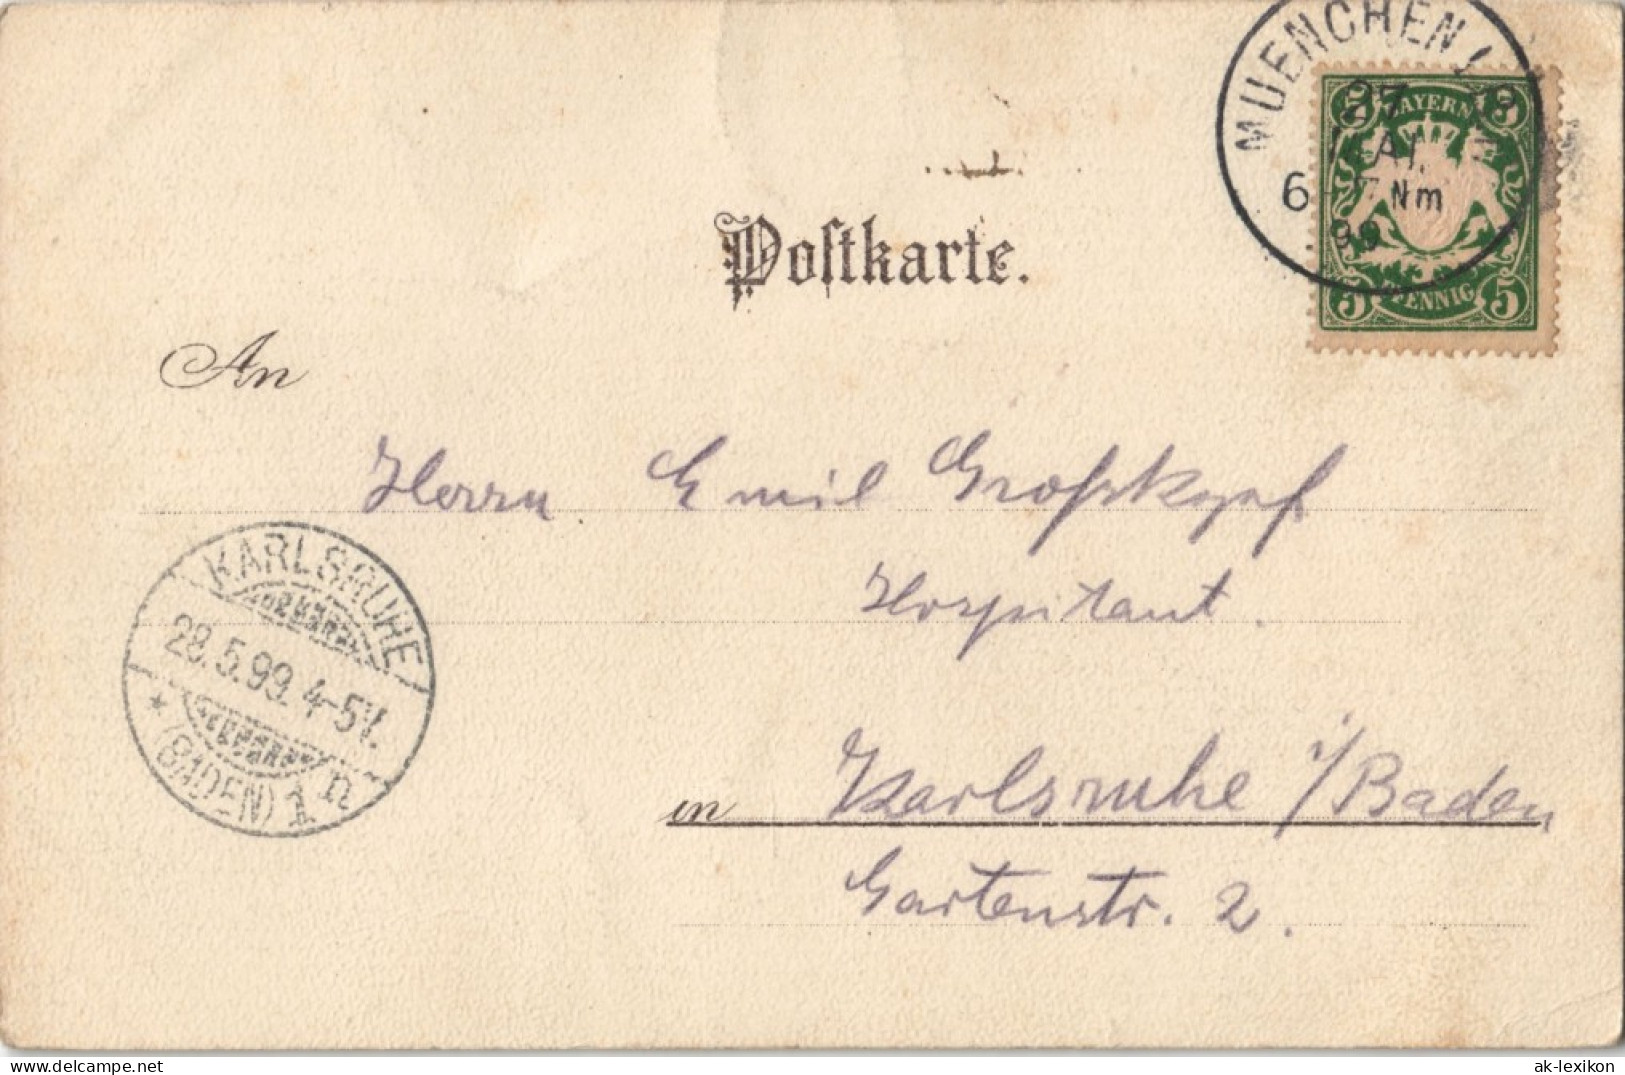 MUENCHEN
27
MAI.
6-7 Nm
99
BAYERN
5 5
PFENNIG
Postkarte.
An
Herrn Emil Großkopf
Hospitant.
KARLSRUHE
28.5.99. 4-5V.
* (BADEN) 1 n
in Karlsruhe i/Baden
Gartenstr. 2.
www.ansichtskarten-lexikon.de
ak-lexikon